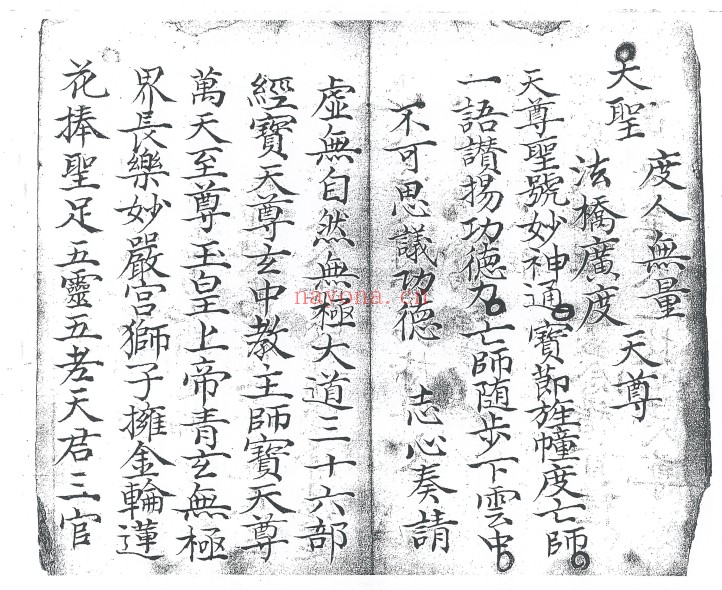 大聖
度人無量
法橋廣度
天尊
天尊聖號妙神通寶節旌幢度亡師
一語讃揚功德力亡師随步下雲中
不可思議功德 志心奏請
虛無自然無極大道三十六部
經寶天尊玄中教主師寶天尊
萬天至尊玉皇上帝青玄無極
界長樂妙嚴宮獅子擁金輪蓮
花捧聖足五靈五老天君三官
nayona.cn